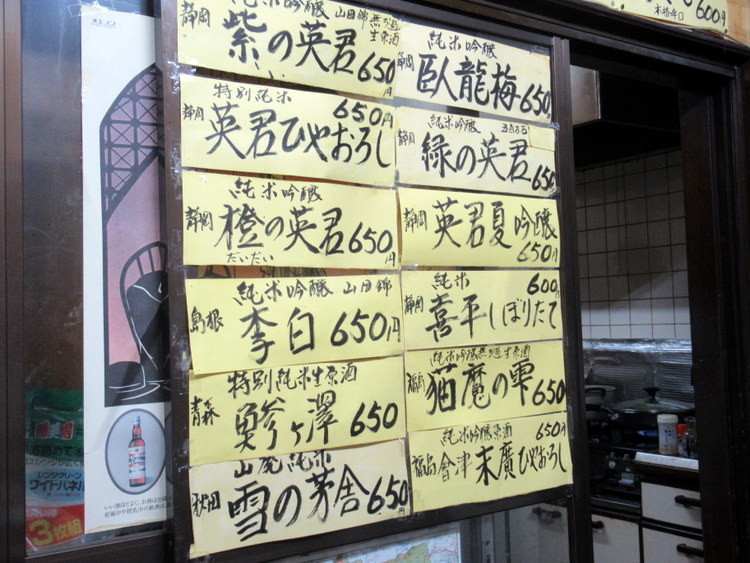 純米吟醸 山田錦 無ろ過
生原酒
静岡
紫の英君 650円
特別純米
650円
静岡
英君ひやおろし
純米吟醸
静岡
橙の英君 650円
だいだい
純米吟醸 山田錦
島根
李白 650円
特別純米生原酒
青森
ヶ澤 650
山廃 純米
秋田
雪の茅舎 650
純米吟醸
静岡
臥龍梅 650
純米吟醸
緑の英君 650
静岡
静岡
英君夏吟醸
650円
純米
600円
静岡
喜平しぼりたて
純米吟醸無ろ過生原酒
猫魔の雫 650
純米吟醸原酒
650円
福島
會津 末廣ひやおろし
本格辛口
600円
ワイドパネル
3枚組